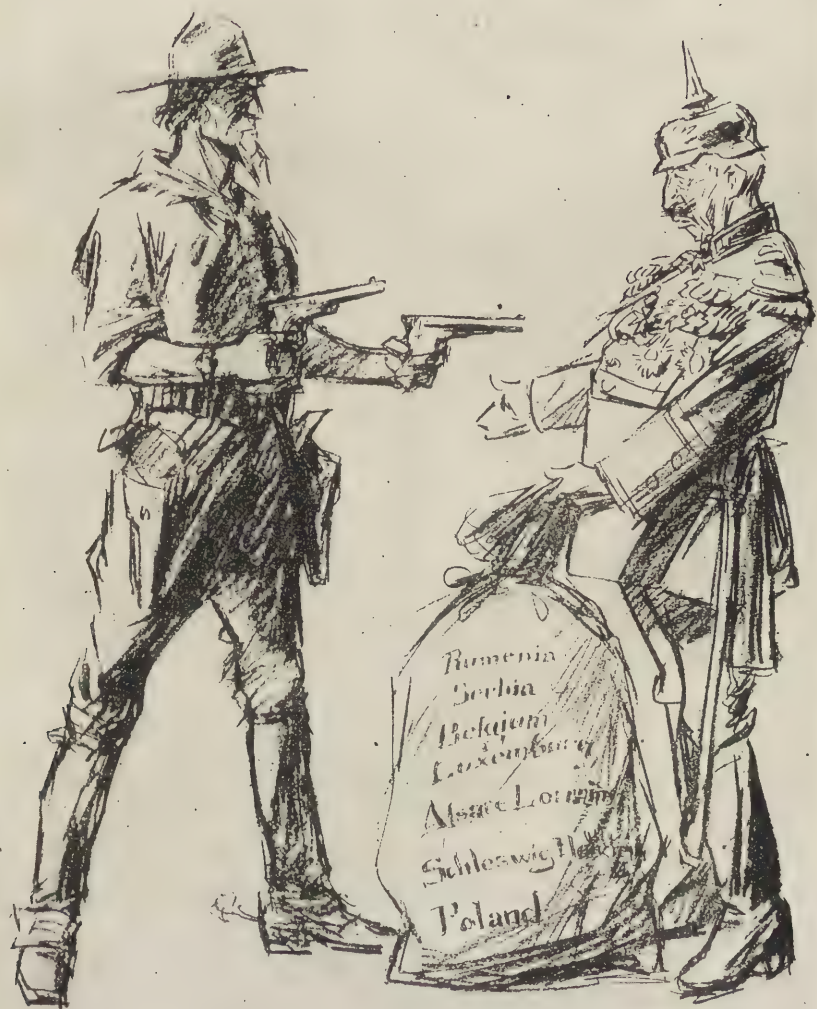 Rumenia
Serbia
Belgium
Luxemburg
Alsace Lorraine
Schleswig
Poland